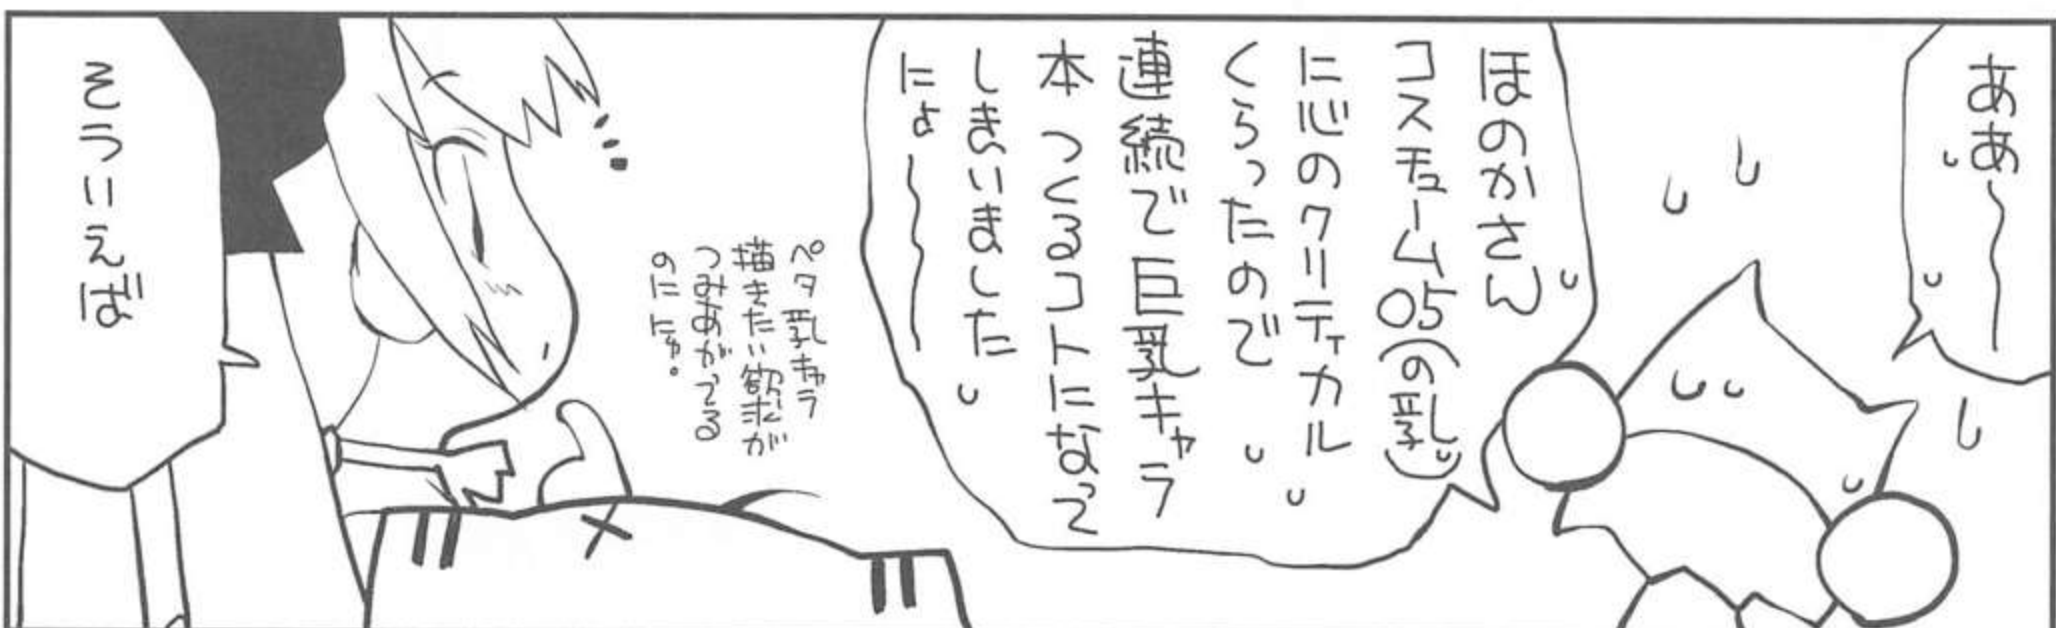 ああ〜
ほのかさん
コスチューム05(の乳)
に心のクリティカル
くらったので
連続で巨乳キャラ
本つくるコトになって
しまいました
にょ〜
ペタ乳キャラ
描きたい欲求が
つみあがってる
のににゅ。
そういえば